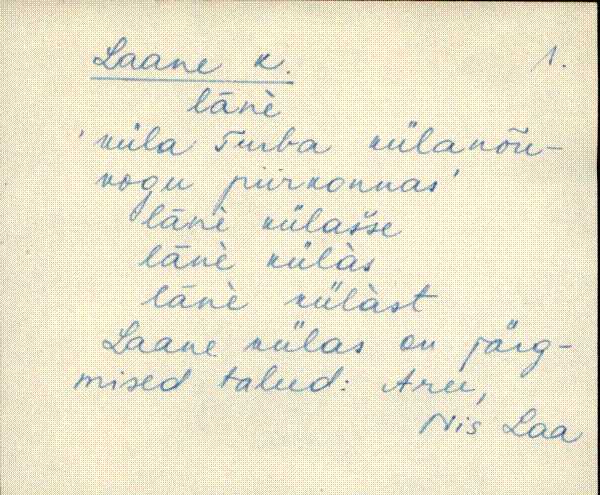 Laane k. 1.
lānè
'küla Turba külanõu-
kogu piirkonnas'
lānè külašse
lānè külàs
lānè külàst
Laane külas on järg-
mised talud: Aru,
Nis Laa